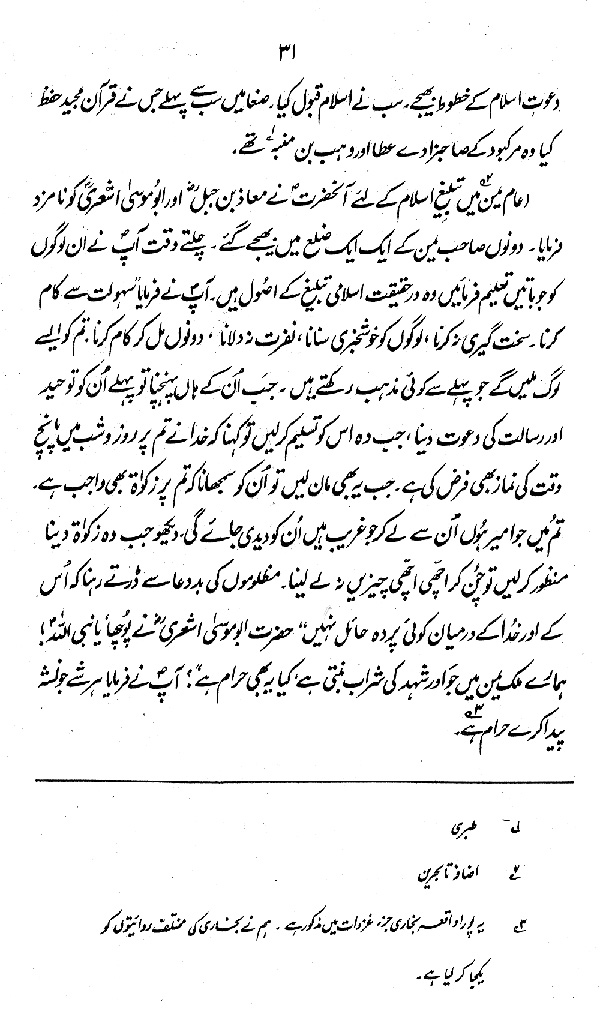 ۳۱
دعوتِ اسلام کے خطوط بھیجے۔ سب نے اسلام قبول کیا۔ صنعا میں سب سے پہلے جس نے قرآن مجید حفظ
کیا وہ مرکبود کے صاحبزادے عطا اور وہب بن منبہ ؎۱ تھے۔
(عام یمن ؎۲ میں تبلیغِ اسلام کے لئے آنحضرتؐ نے معاذ بن جبلؓ اور ابو موسیٰ اشعریؓ کو نامزد
فرمایا۔ دونوں صاحب یمن کے ایک ایک ضلع میں بھیجے گئے۔ چلتے وقت آپؐ نے ان لوگوں
کو جو باتیں تعلیم فرمائیں وہ درحقیقت اسلامی تبلیغ کے اصول ہیں۔ آپؐ نے فرمایا "سہولت سے کام
کرنا۔ سخت گیری نہ کرنا، لوگوں کو خوشخبری سنانا، نفرت نہ دلانا، دونوں مل کر کام کرنا۔ تم کو ایسے
لوگ ملیں گے جو پہلے سے کوئی مذہب رکھتے ہیں۔ جب اُن کے ہاں پہنچنا تو پہلے اُن کو توحید
اور رسالت کی دعوت دینا، جب وہ اس کو تسلیم کرلیں تو کہنا کہ خدا نے تم پر روز و شب میں پانچ
وقت کی نماز بھی فرض کی ہے۔ جب یہ بھی مان لیں تو اُن کو سمجھانا کہ تم پر زکوٰۃ بھی واجب ہے۔
تم میں جو امیر ہوں اُن سے لے کر جو غریب ہیں اُن کو دیدی جائے گی، دیکھو جب وہ زکوٰۃ دینا
منظور کرلیں تو چُن کر اچھی اچھی چیزیں نہ لے لینا۔ مظلوموں کی بددعا سے ڈرتے رہنا کہ اُس
کے اور خدا کے درمیان کوئی پردہ حائل نہیں" حضرت ابو موسیٰ اشعریؓ نے پوچھا "یا نبی اللہ!
ہمارے ملک یمن میں جو اور شہد کی شراب بنتی ہے، کیا یہ بھی حرام ہے"؟ آپؐ نے فرمایا ہر شے جو نشہ
پیدا کرے حرام ہے ؎۳۔
؎۱ طبری
؎۲ اضافہ تا بحرین
؎۳ یہ پورا واقعہ بخاری جزء غزوات میں مذکور ہے۔ ہم نے بخاری کی مختلف روائیتوں کو
یکجا کر لیا ہے۔